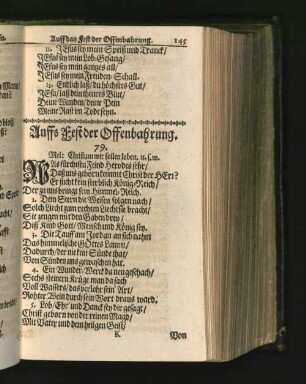 Auff das Fest der Offenbahrung. 145
11. JEsus sey mein Speiß und Tranck/
JEsus sey mein Lob-Gesang/
JEsus sey mein gantzes all/
JEsus sey mein Freuden-Schall.
12. Endlich laß/ du höchstes Gut/
JEsu/ laß dein theures Blut/
Deine Wunden/ deine Pein
Meine Rast im Tode seyn.
Auffs Fest der Offenbahrung.
79.
Mel: Christum wir sollen loben. u. s. w.
WAs fürchstu Feind Herodes sehr/
Daß uns gebohrn kommt Christ der HErr?
Er sucht kein sterblich König-Reich/
Der zu uns bringt sein Himmel-Reich.
2. Dem Stern die Weisen folgen nach/
Solch Liecht zum rechten Liecht sie bracht/
Sie zeugen mit den Gaben drey/
Diß Kind Gott/ Mensch und König sey.
3. Die Tauff am Jordan an sich nahm
Das himmelische GOttes Lamm/
Dadurch/ der nie kein Sünde that/
Von Sünden uns gewaschen hat.
4. Ein Wunder-Werck da neu geschach/
Sechs steinern Krüge man da sach
Voll Wassers/ das verlohr sein' Art/
Rohter Wein durch sein Wort draus ward.
5. Lob/ Ehr' und Danck sey dir gesagt/
Christ geborn von der reinen Magd/
Mit Vater und dem heilgen Geist/
K. Von